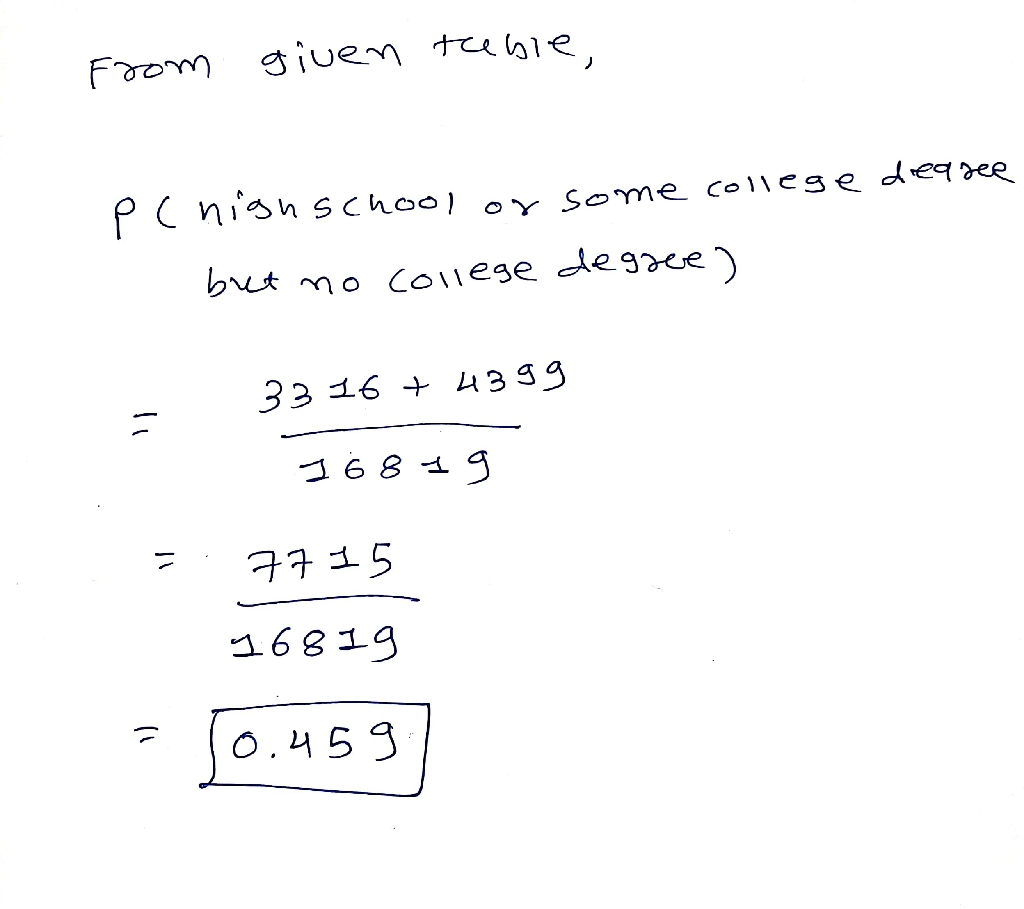 From given table,
P(high school or some college degree
but no college degree)
= 3316 + 4399
16819
= 7715
16819
= 0.459